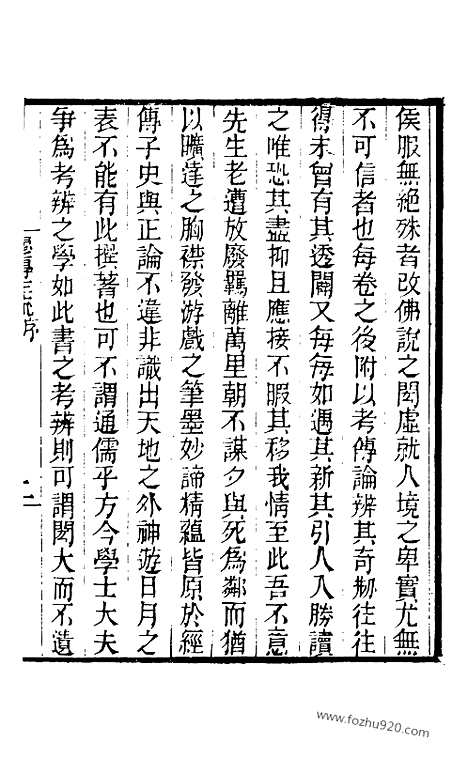 侯服無絶殊者改佛說之閎虛就人境之卑實尤無
不可信者也每卷之後附以考傳論辨其奇刱往往
得未曾有其透闢又每每如遇其新其引人入勝讀
之唯恐其盡抑且應接不暇其移我情至此吾不意
先生老遭放廢羈離萬里朝不謀夕與死爲鄰而猶
以曠達之胸襟發游戲之筆墨妙諦精蘊皆原於經
傳子史與正論不違非識出天地之外神遊日月之
表不能有此撰著也可不謂通儒乎方今學士大夫
爭爲考辨之學如此書之考辨則可謂閎大而不遺
序
二
www.fozhu920.com